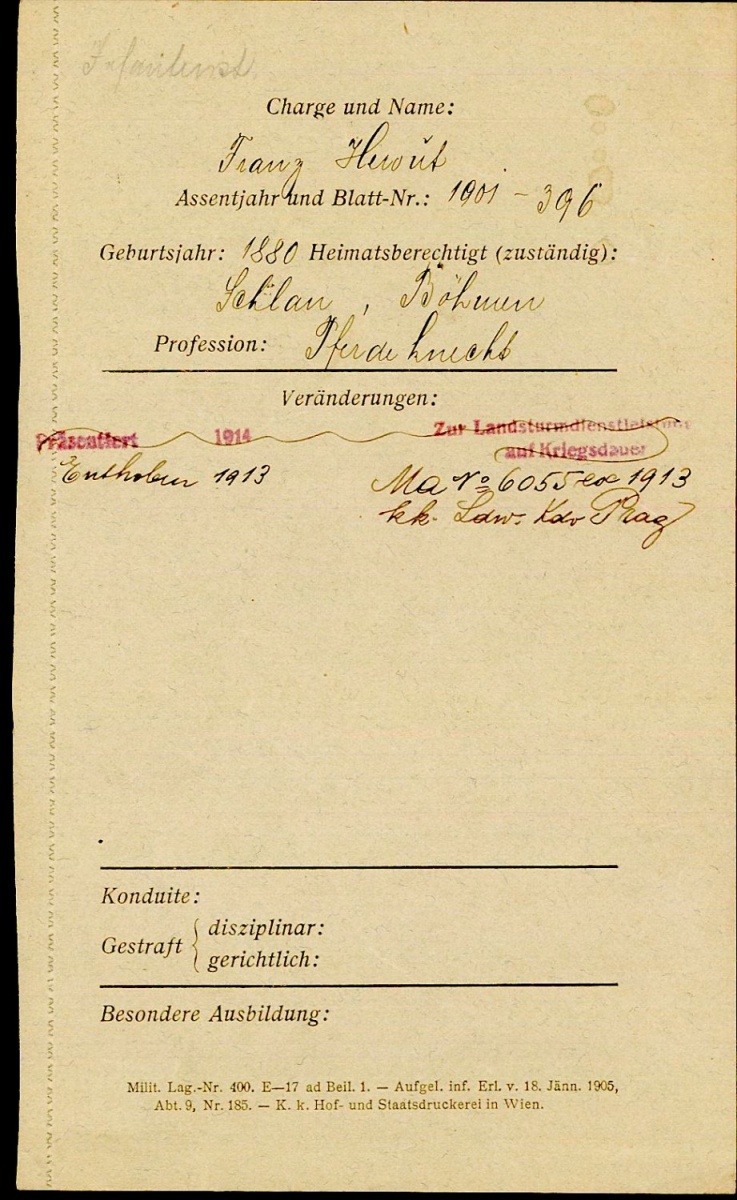 Infanterist
Charge und Name:
Franz Herout
Assentjahr und Blatt-Nr.: 1901 - 396
Geburtsjahr: 1880 Heimatsberechtigt (zuständig):
Schlan, Böhmen
Profession: Pferdeknecht
Veränderungen:
Präsentiert 1914 Zur Landsturmdienstleistung
auf Kriegsdauer
Enthoben 1913 Ma No 6055 ex 1913
kk. Ldw. Kdo Prag
Konduite:
Gestraft { disziplinar:
gerichtlich:
Besondere Ausbildung:
Milit. Lag.-Nr. 400. E—17 ad Beil. 1. — Aufgel. inf. Erl. v. 18. Jänn. 1905,
Abt. 9, Nr. 185. — K. k. Hof- und Staatsdruckerei in Wien.